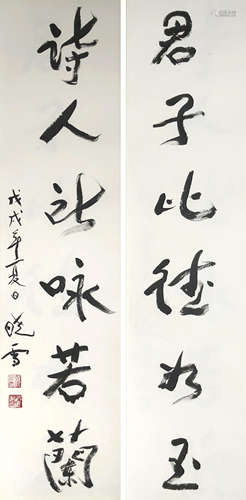 君子比德如玉
诗人所咏若蘭
戊戌年夏日 晓雪